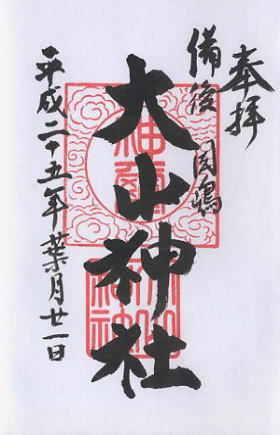 奉拝
備後 因嶋
大山神社
平成二十五年葉月廿一日